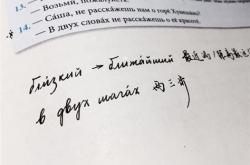 13. — Возьми, пожалуйста
14. — Саша, не расскажешь нам о горе
— В двух словах не расскажешь о её красоте.
бли́зкий → ближа́йший 最近的
в двух шага́х 两三步